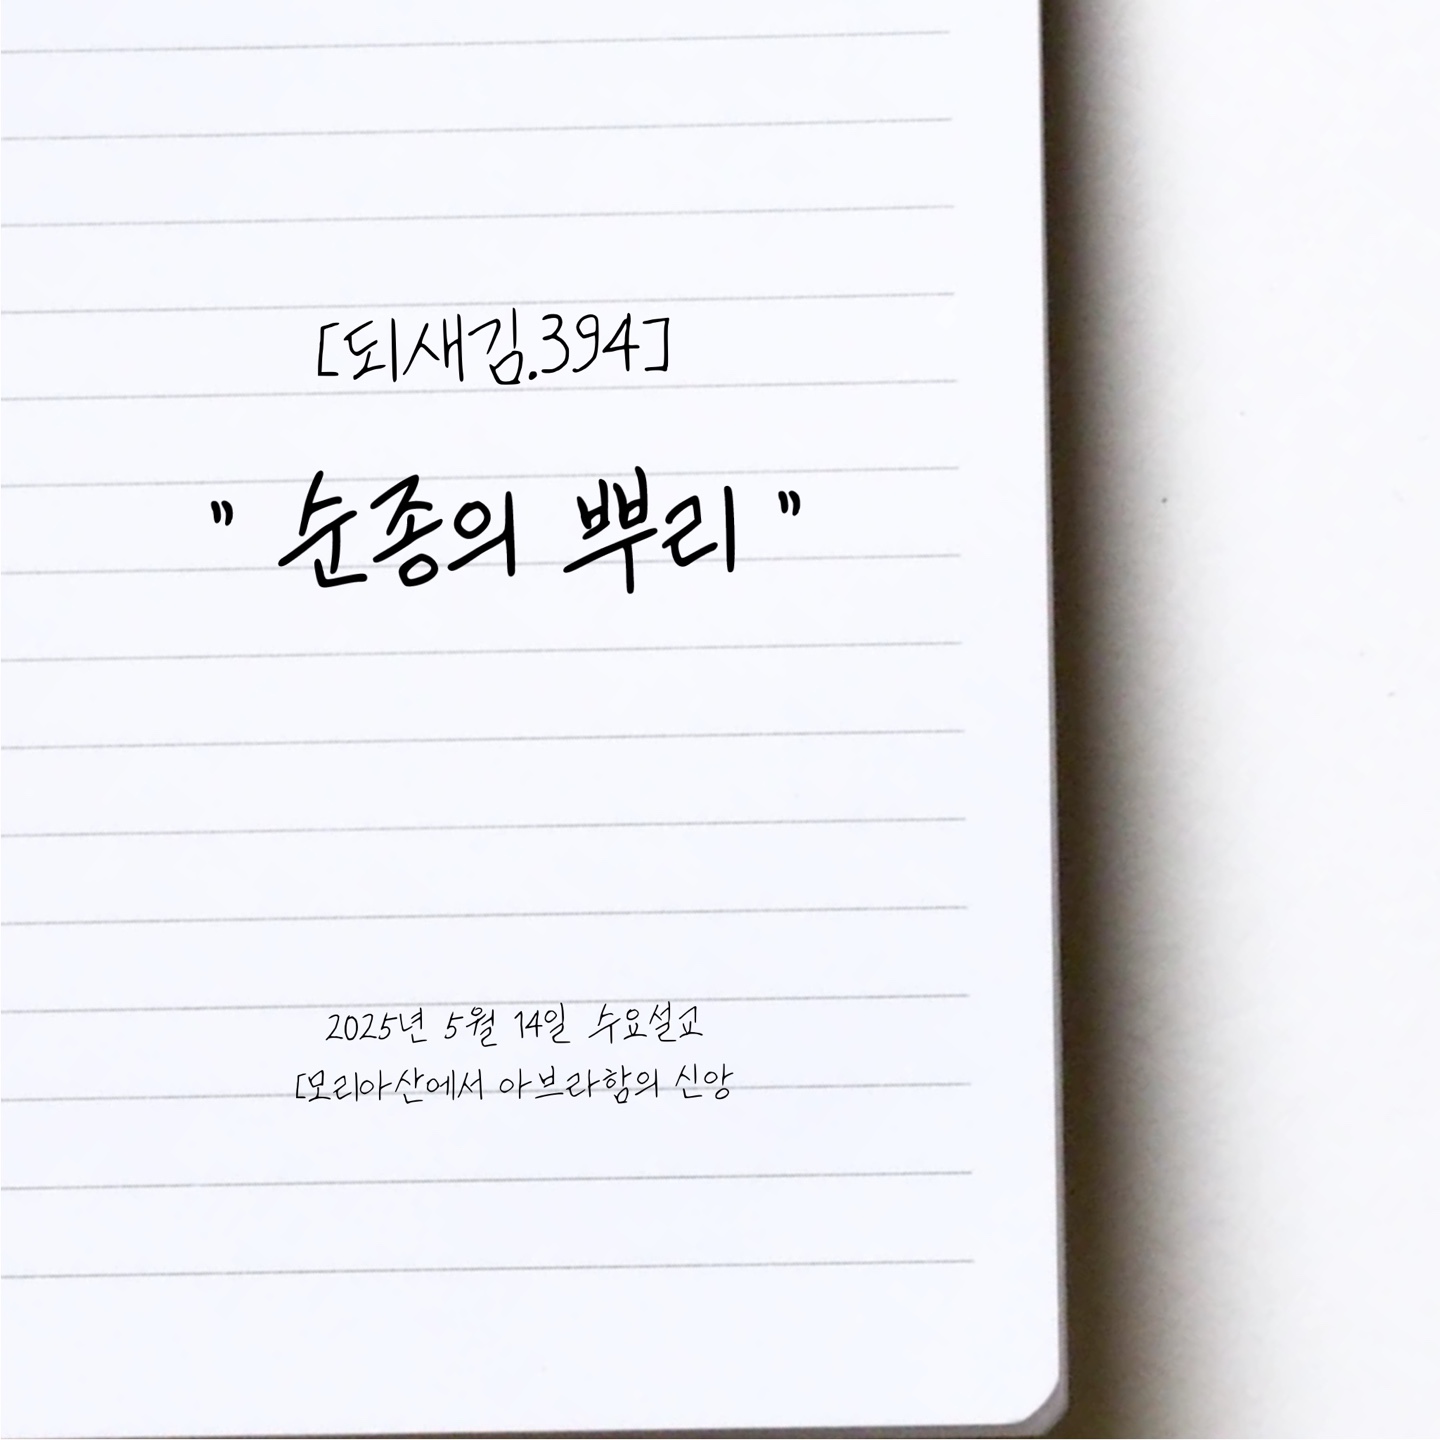 [되새김.394]
" 순종의 뿌리 "
2025년 5월 14일 수요설교
[모리아산에서 아브라함의 신앙